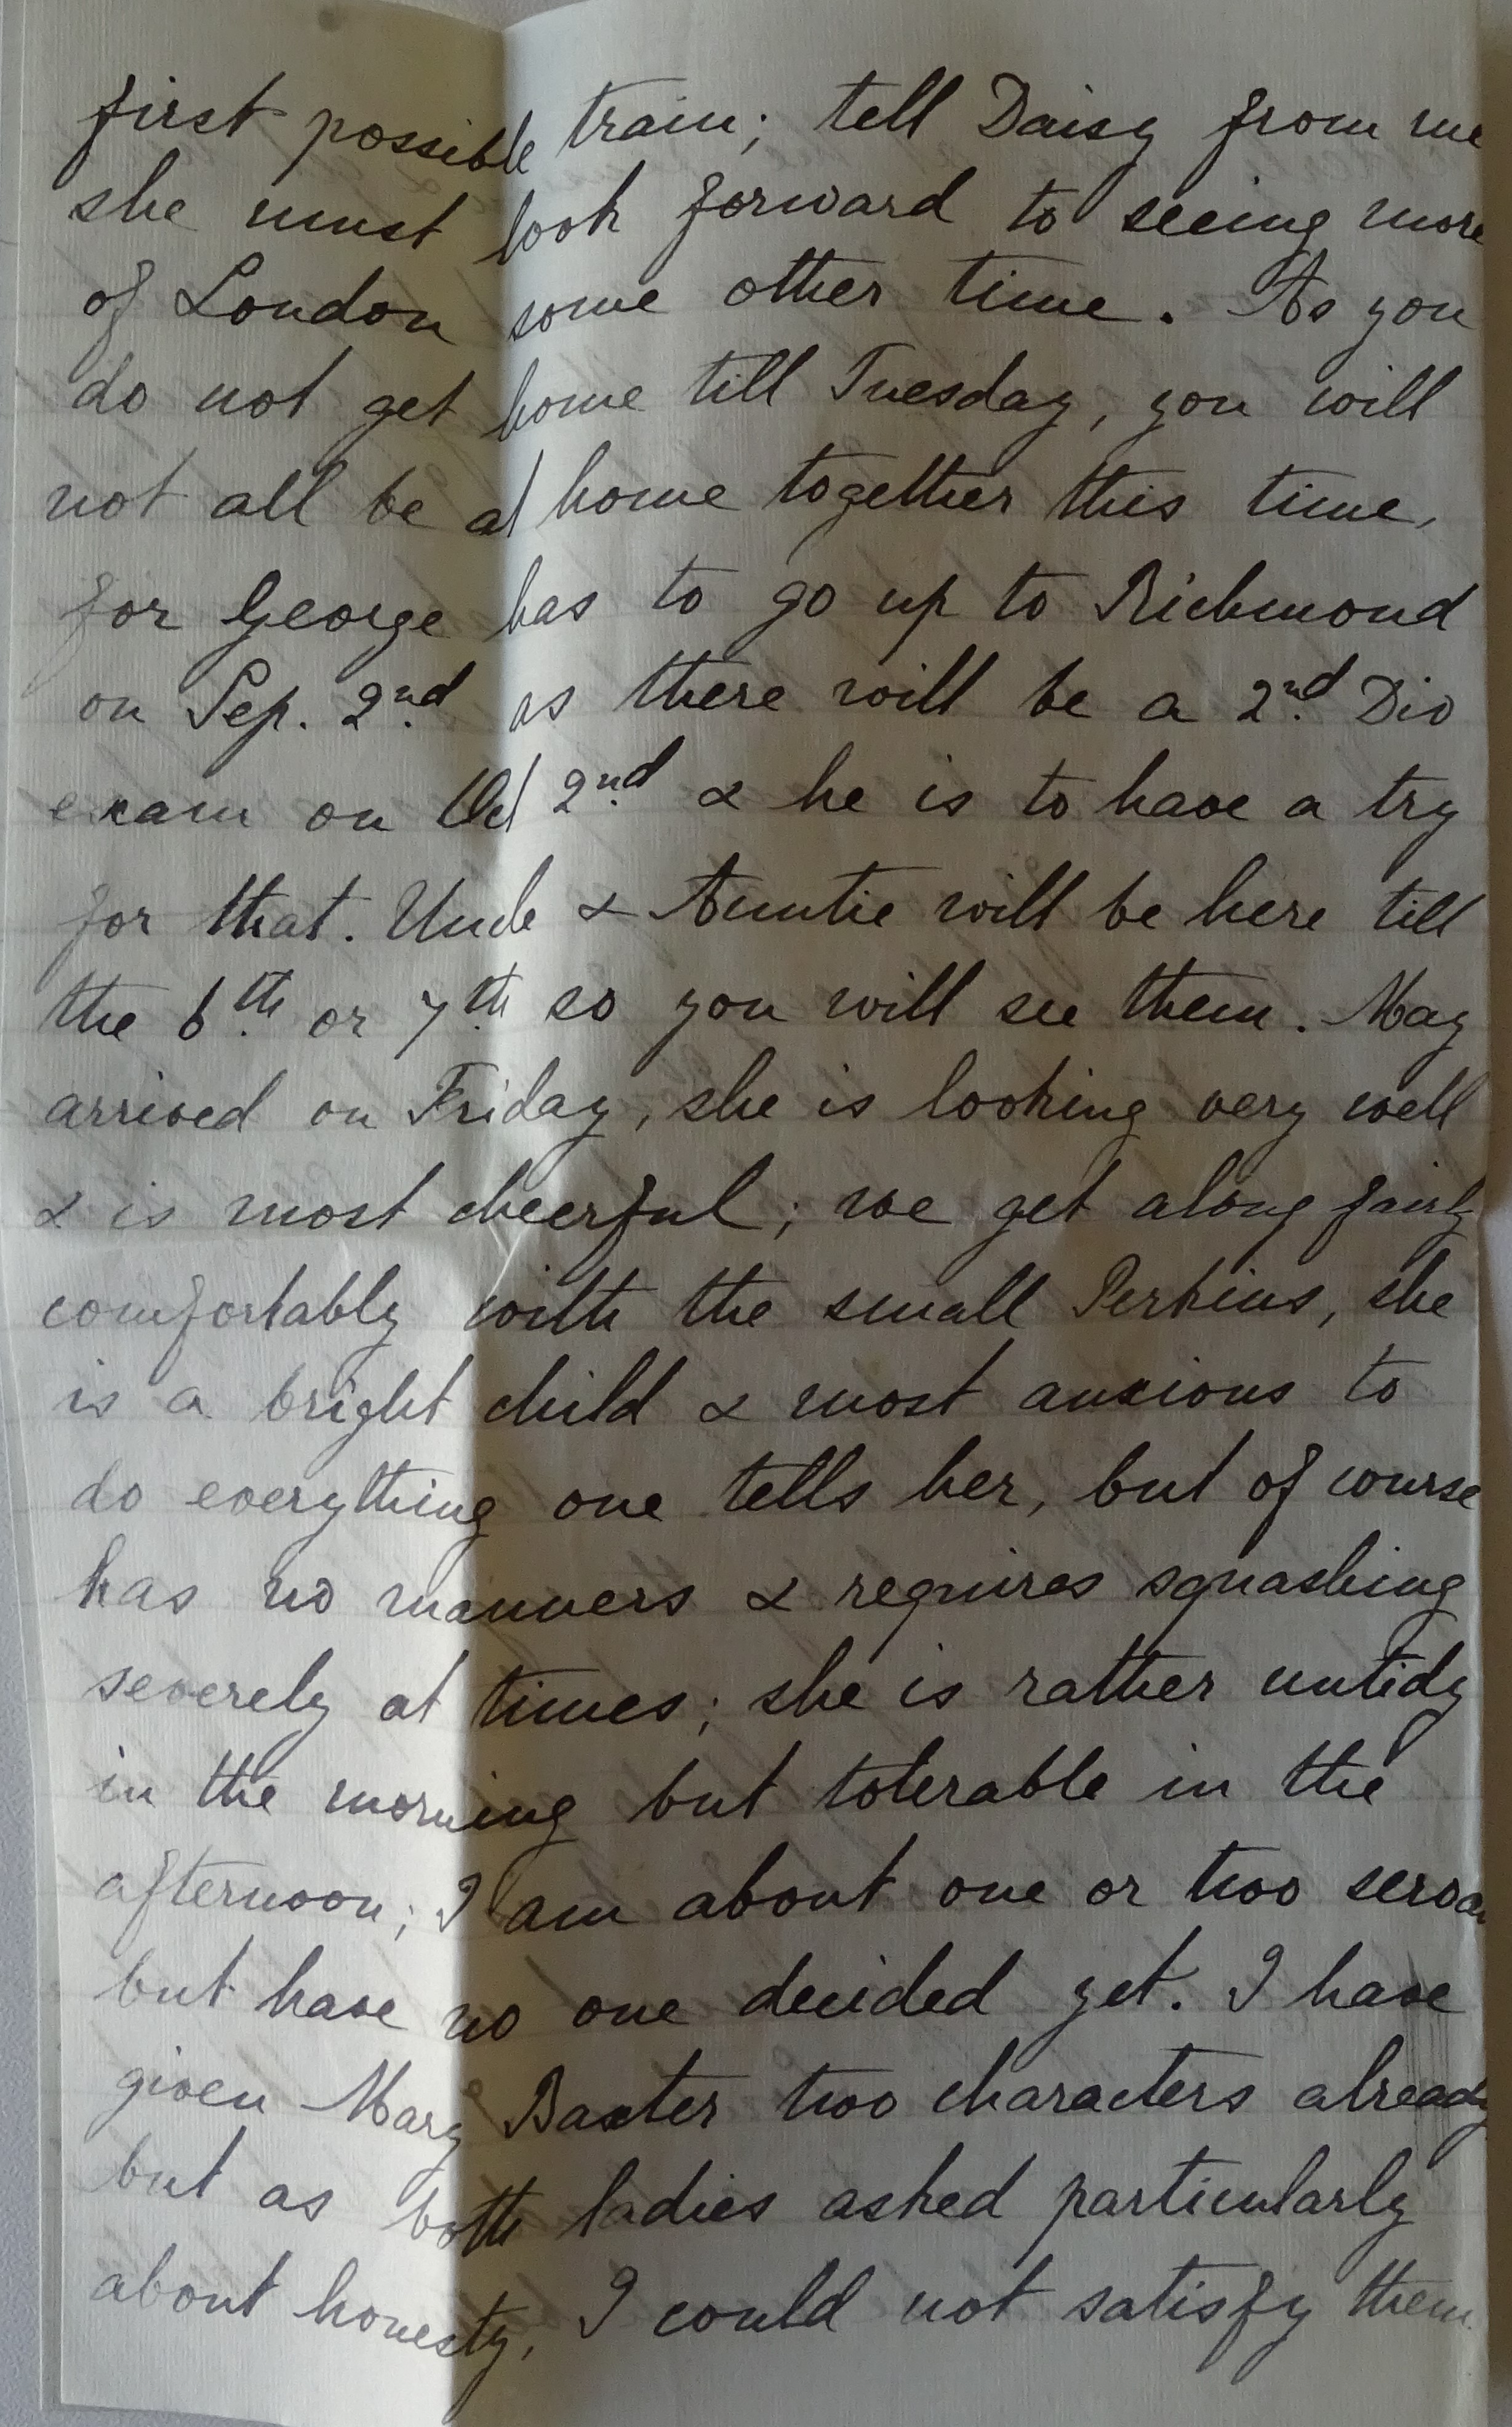 first possible train; tell Daisy from me
she must look forward to seeing more
of London some other time. As you
do not get home till Tuesday, you will
not all be at home together this time,
for George has to go up to Richmond
on Sep. 2nd as there will be a 2nd Div
exam on Oct 2nd & he is to have a try
for that. Uncle & Auntie will be here till
the 6th or 7th so you will see them. May
arrived on Friday, she is looking very well
& is most cheerful; we get along fairly
comfortably with the small Perkins, she
is a bright child & most anxious to
do everything one tells her, but of course
has no manners & requires squashing
severely at times; she is rather untidy
in the morning but tolerable in the
afternoon; I am about one or two
but have no one decided yet. I have
given Mary Baxter two characters already
but as both ladies asked particularly
about honesty, I could not satisfy them.